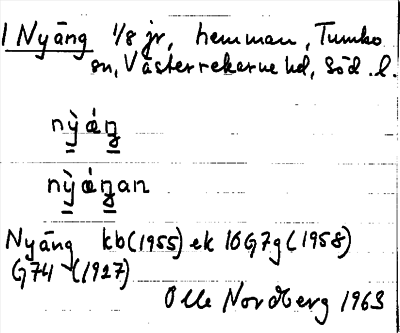 1 Nyäng 1/8 jr, hemman, Tumbo
sn, Västerrekarne hd, Söd. l.
nỳáŋ
nỳáŋan
Nyäng kb(1955) ek 10G7g(1958)
G74 (1927)
Olle Nordberg 1963